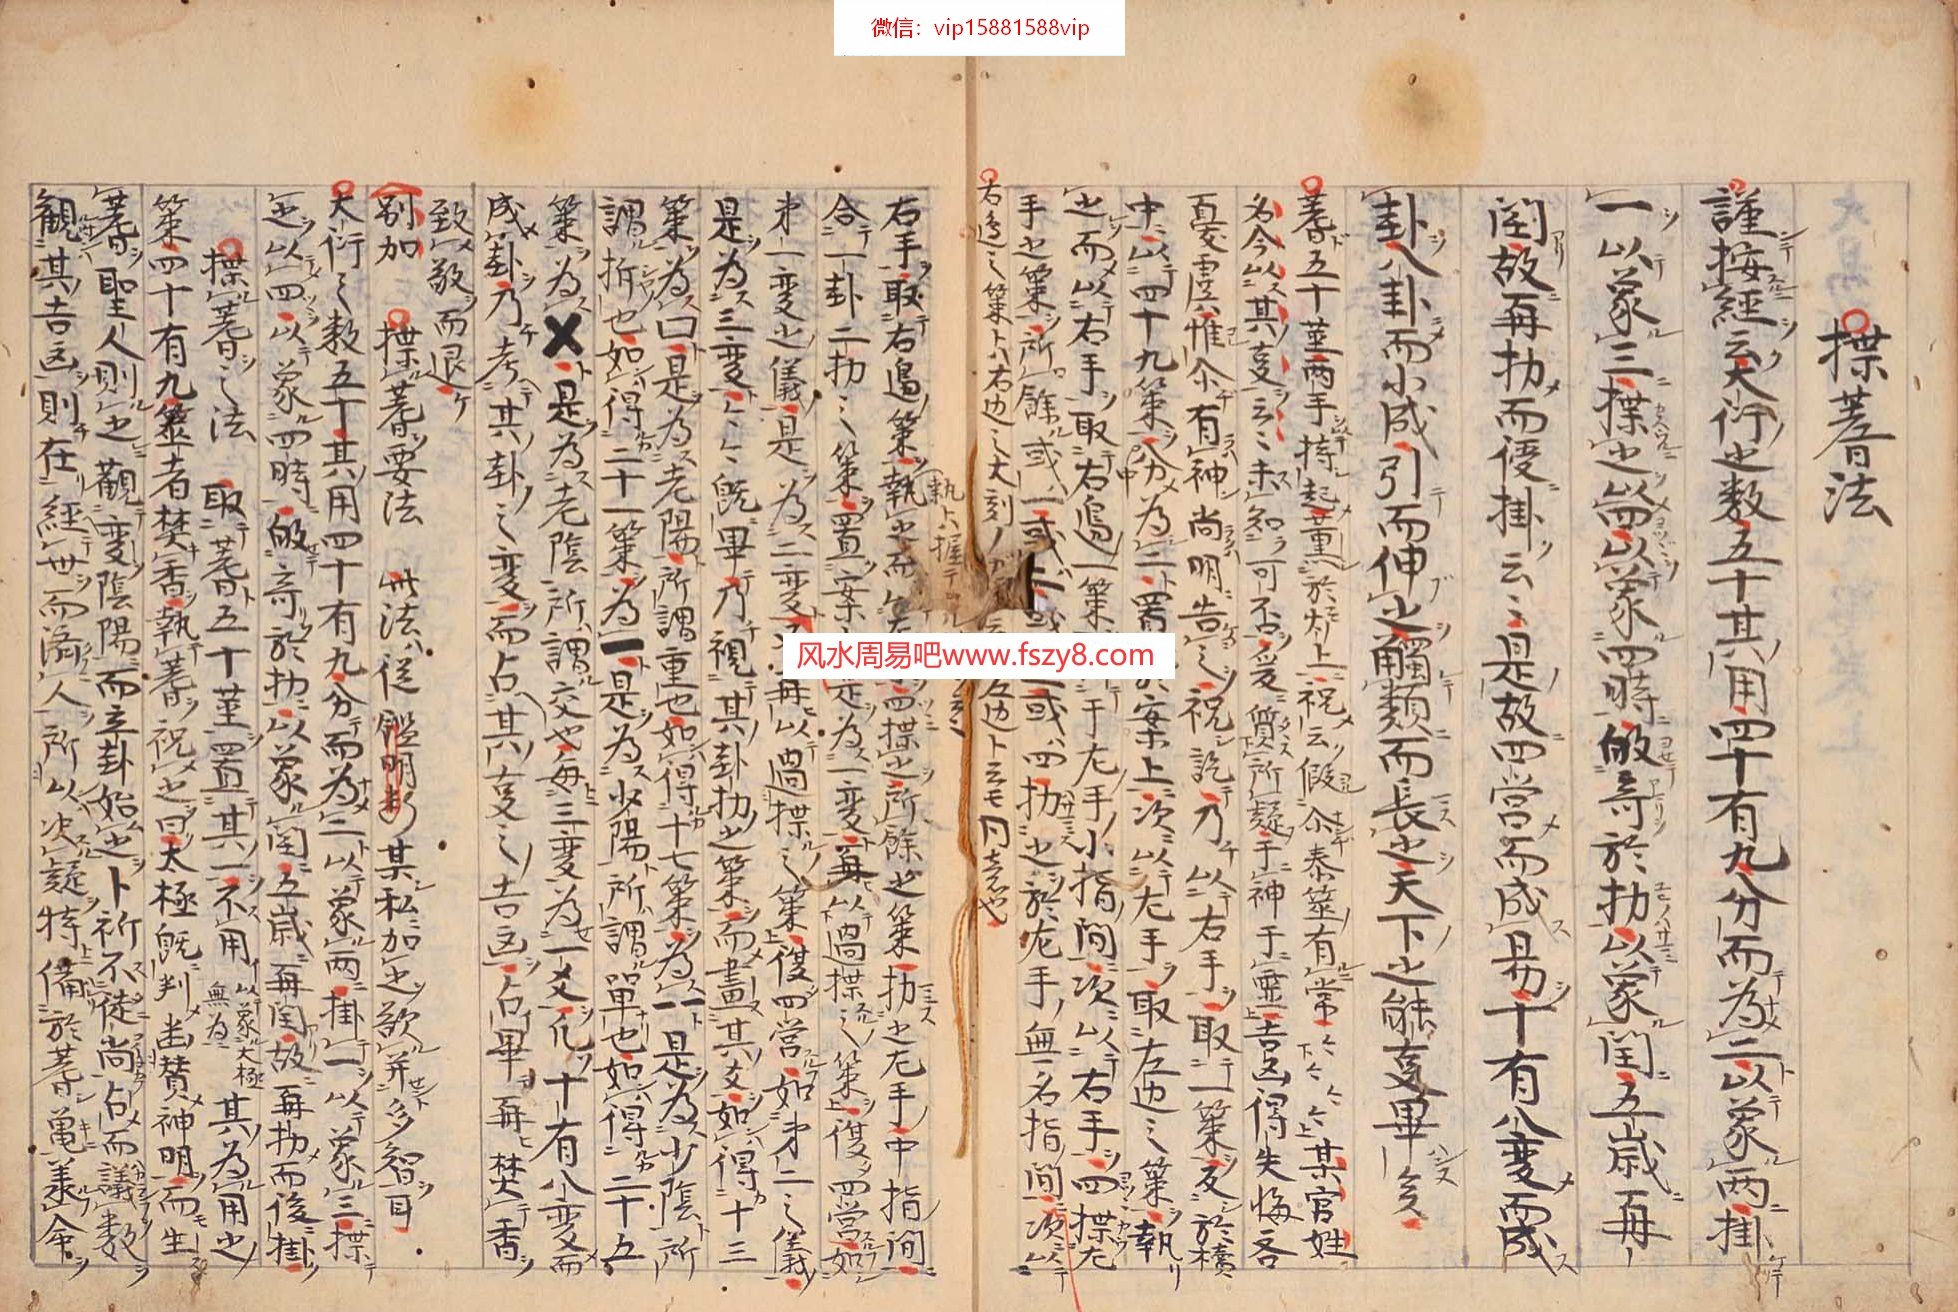 微信：vip15881588vip
揲蓍法
謹按經云大衍之数五十其用四十有九分而為二以象両掛
一以象三揲之以四以象四時皈奇於扐以象閏五歳再
閏故再扐而後掛云々是故四営而成易十有八変而成
卦八卦而小成引而伸之觸類而長之天下之能事畢矣
蓍五十茎両手持起薫於炉上祝云假尓泰筮有常々々々々某官姓
名今以其事云々未知可否爰質所疑于神于霊吉凶得失悔吝
憂虞惟尓有神尚明告之祝訖乃以右手取一策反於櫝
中以四十九策分為二置於案上次以左手取左边之策執
之而以右手取右边一策于左手小指間次以右手四揲左
手之策所餘或一或二或三或四扐之於左手無名指間次以
右边之策卜ハ右边之大刻
右手取右边策執之而 四揲之所餘之策扐之左手中指間
合一卦二扐之策置案 是為一変再以過揲之策復四営如
才一変之儀是為二変 再以過揲之策復四営如才二之儀
是為三変々々既畢乃視其卦扐之策而畫其爻如得十三
策為口是為老陽所謂重也如得十七策為一是為少陰所
謂折也如得二十一策為一是為少陽所謂單也如得二十五
策為×是為老陰所謂交也每三変為一爻凡十有八変而
成卦乃考其卦之変而占其事之吉凶占畢再焚香
致敬而退
別加 揲蓍要法 此法従 某私加之欲并多智耳
大衍之数五十其用四十有九分而為二以象両掛一以象三揲
之以四以象四時皈奇於扐以象閏五歳再閏故再扐而後掛
揲蓍之法 取蓍五十莖置其一不用 以象大極無為 其為用之
策四十有九筮者焚香執蓍祝之曰太極既判幽賛神明而生
蓍聖人則之觀変陰陽而立卦始之卜祈不徒尚占而議数
觀其吉凶則在經世而濟人所以决疑特備於蓍亀羕命
风水周易吧www.fszy8.com